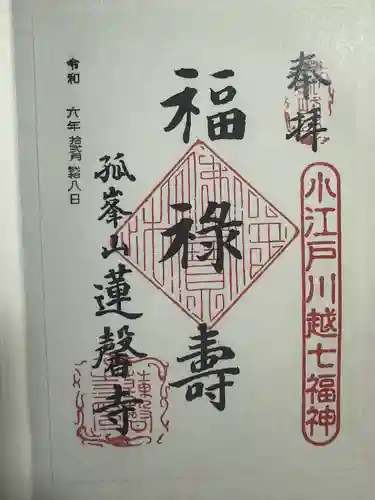 奉拝
小江戸川越七福神
福禄寿
孤峯山蓮馨寺
令和 六年 拾弐月 拾八日